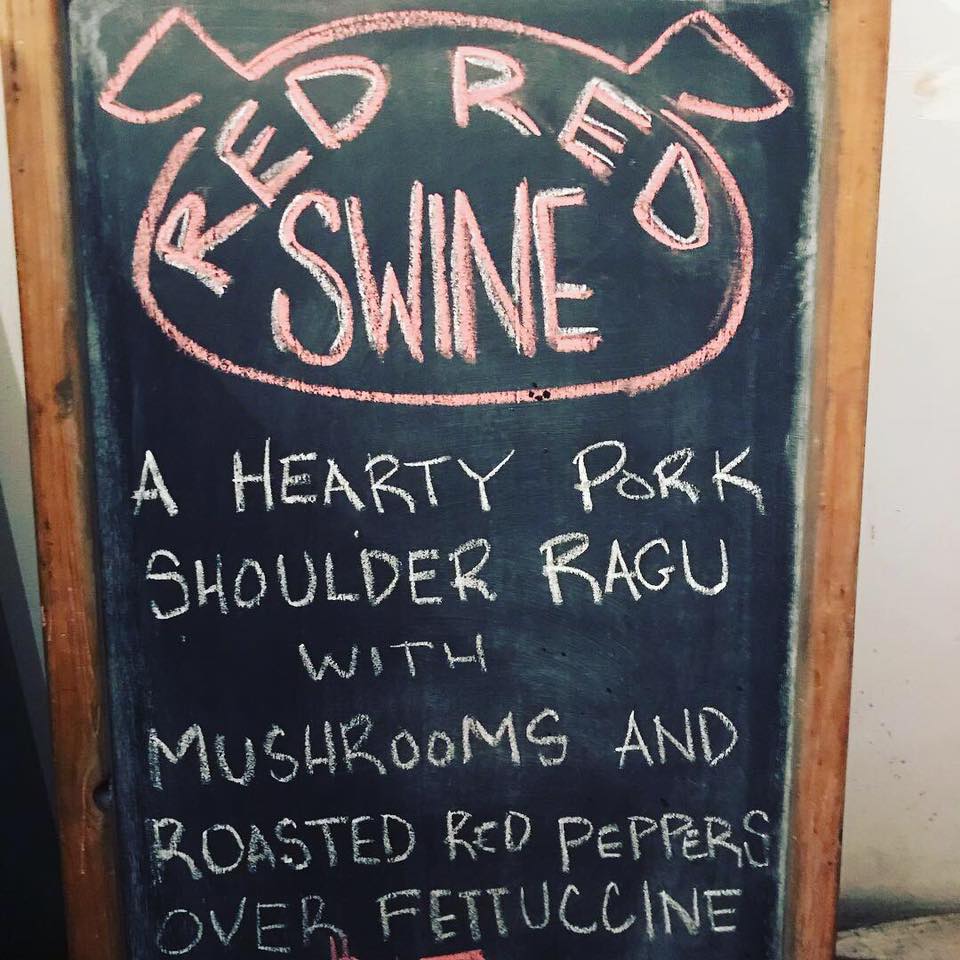 RED RED
SWINE
A HEARTY PORK
SHOULDER RAGU
WITH
MUSHROOMS AND
ROASTED RED PEPPERS
OVER FETTUCCINE